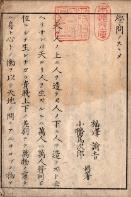 学問ノスヽメ
福澤諭吉
小幡篤次郎
同著
天ハ人ノ上ニ人ヲ造ラズ人ノ下ニ人ヲ造ラズト云
ヘリサレバ天ヨリ人ヲ生ズルニハ萬人ハ萬人皆同ジ
位ニシテ生レナガラ貴賤上下ノ差別ナク萬物ノ靈タ
ル身ト心トノ働ヲ以テ天地ノ間ニアルヨロヅノ物